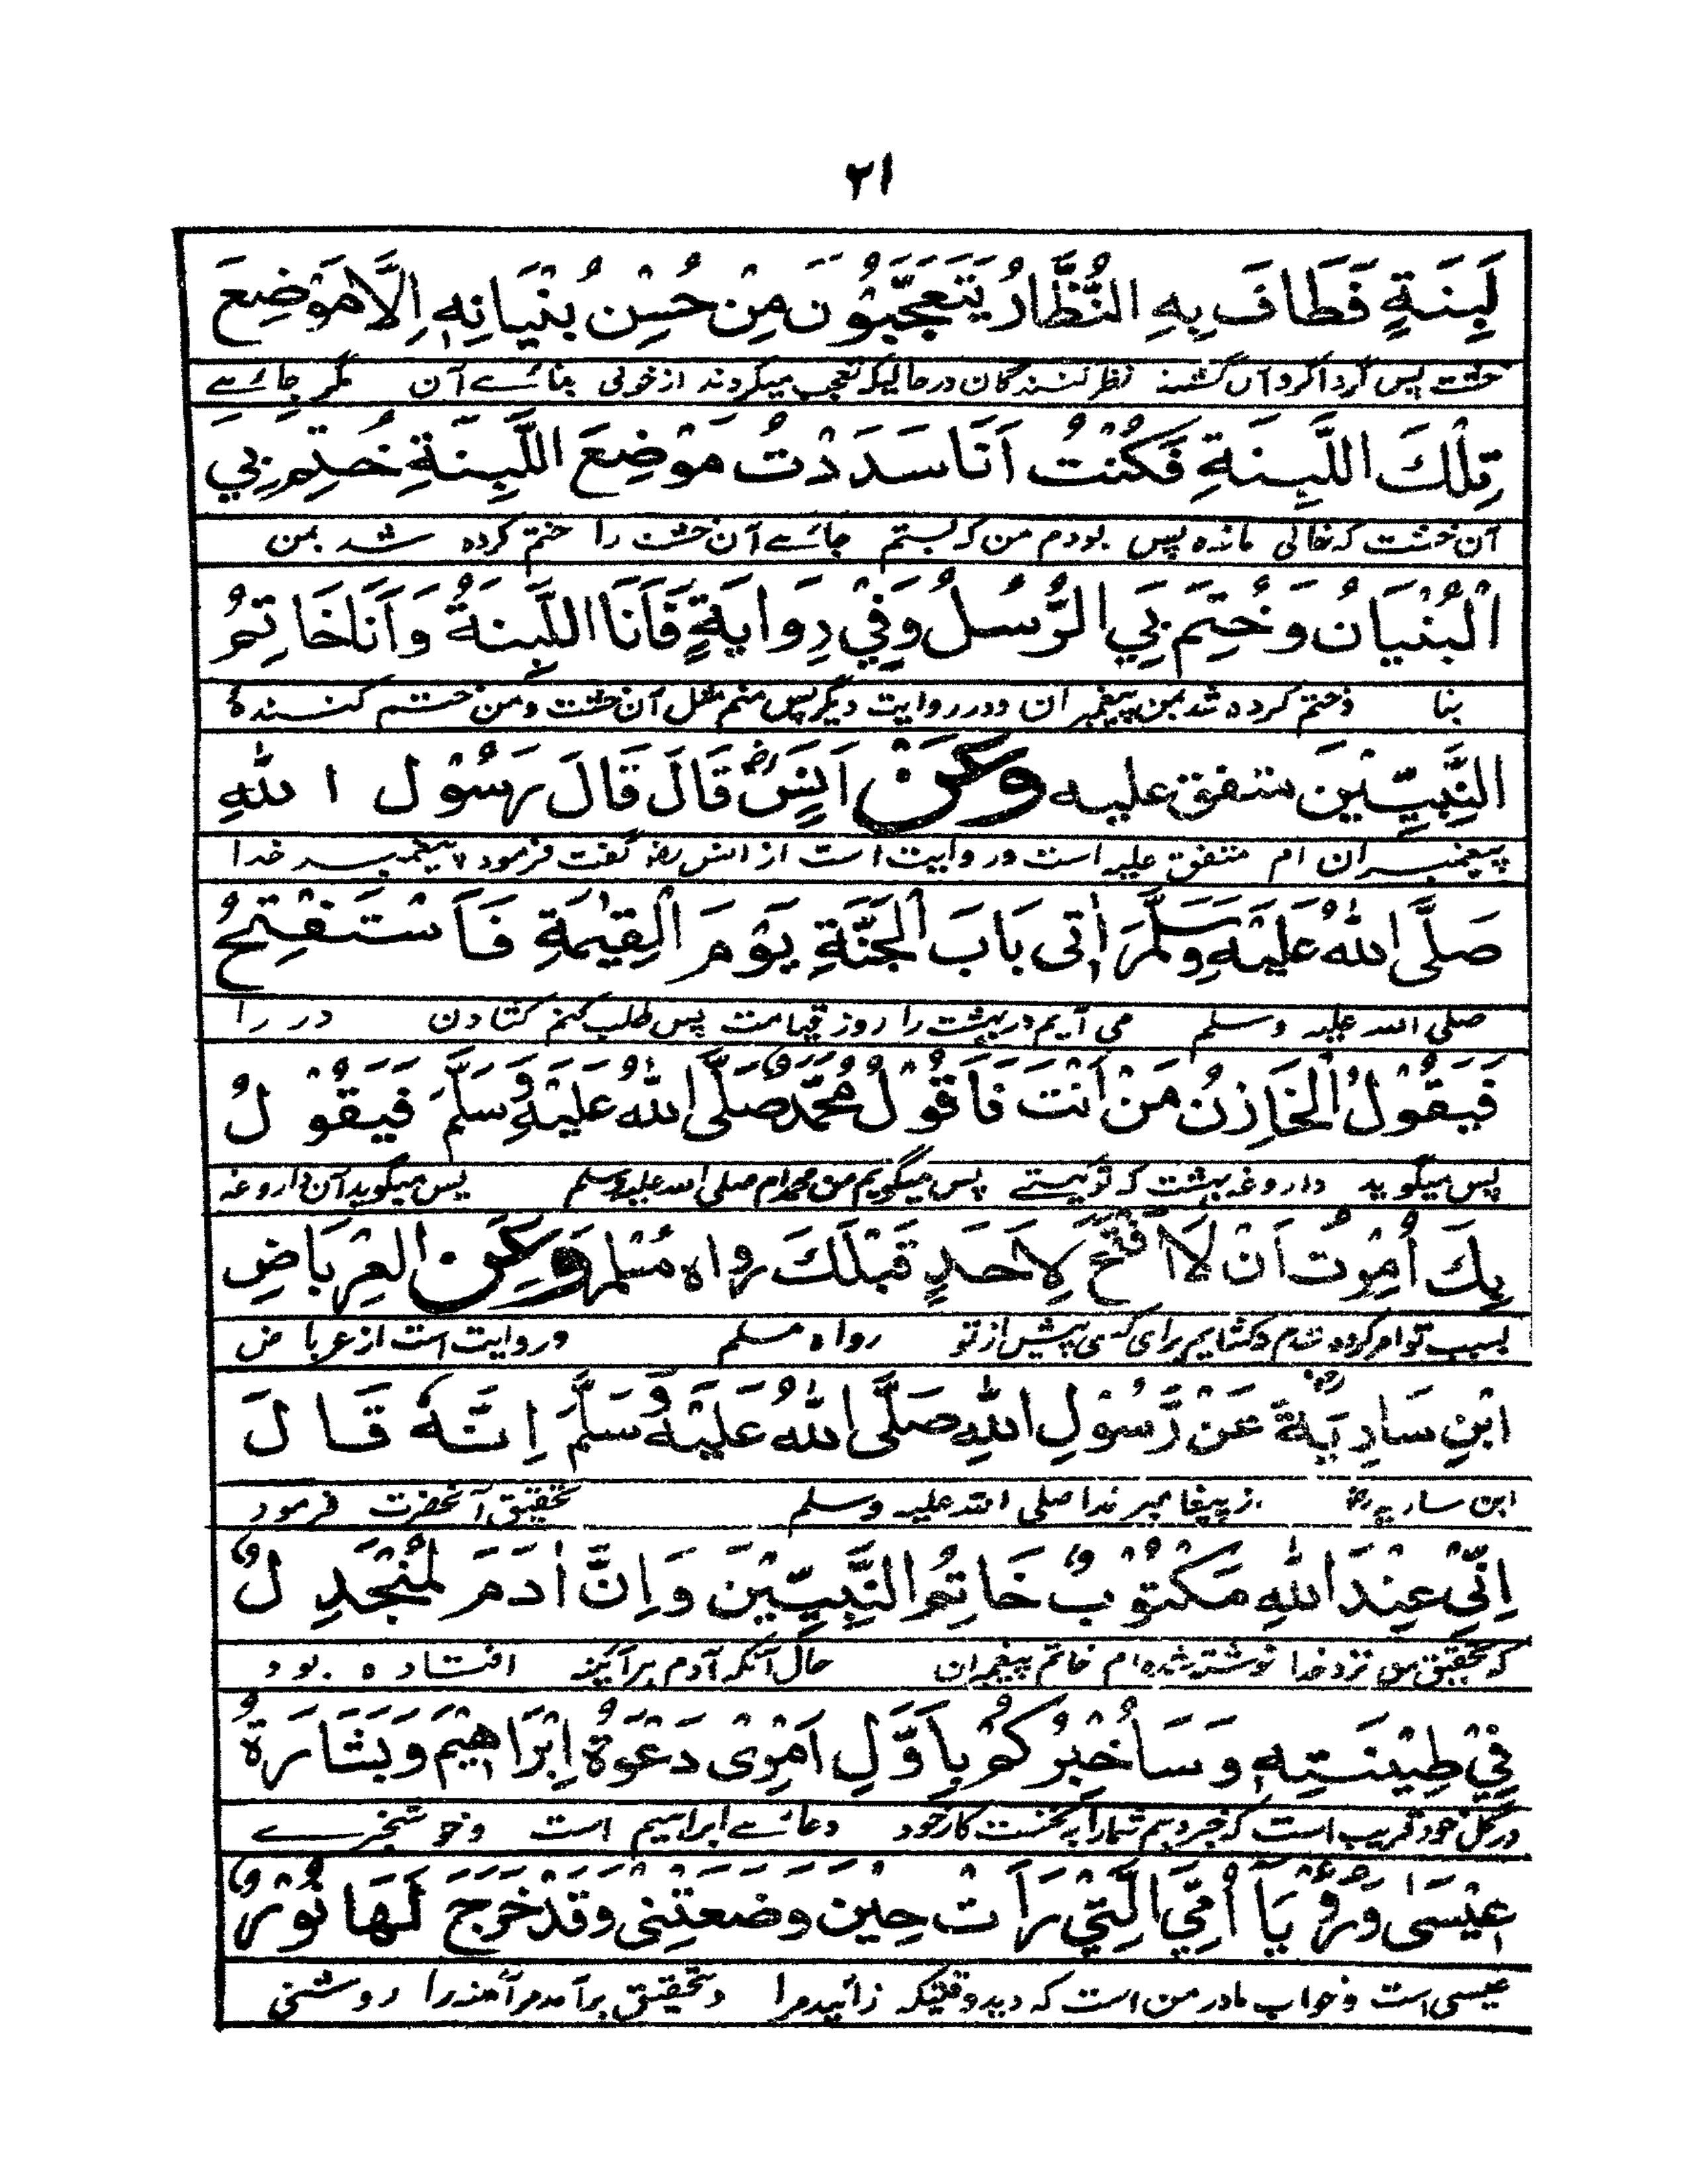 ٢١
لَبِنَةٍ فَطَافَ بِهِ النُّظَّارُ يَتَعَجَّبُوْنَ مِنْ حُسْنِ بُنْيَانِهٖ اِلَّا مَوْضِعَ
خشت پس گرداگرد آں گشتند نظر کنندگان درحالیکہ تعجب میکردند از خوبی بنائے آن مگر جائے
تِلْكَ اللَّبِنَةِ فَكُنْتُ اَنَا سَدَدْتُ مَوْضِعَ اللَّبِنَةِ خُتِمَ بِيَ
آن خشت کہ خالی ماندہ پس بودم من کہ بستم جائے آن خشت را ختم کردہ شد بمن
الْبُنْيَانُ وَخُتِمَ بِيَ الرُّسُلُ وَفِيْ رِوَايَةٍ فَاَنَا اللَّبِنَةُ وَاَنَا خَاتِمُ
بنا وختم کردہ شد بمن پیغمبران ودر روایت دیگر پس منم مثل آن خشت ومن ختم کنندۂ
النَّبِيِّيْنَ متفق عليه وَعَنْ اَنَسٍ رض قَالَ قَالَ رَسُوْل اللهِ
پیغمبران ام متفق علیہ است وروایت است از انس رض گفت فرمود پیغمبر خدا
صَلَّى اللهُ عَلَيْهِ وَسَلَّمَ اٰتِى بَابَ الْجَنَّةِ يَوْمَ الْقِيٰمَةِ فَاَسْتَفْتِحُ
صلی اللہ علیہ وسلم می آیم در بہشت را روز قیامت پس طلب کنم کشادن در را
فَيَقُوْلُ الْخَازِنُ مَنْ اَنْتَ فَاَقُوْلُ مُحَمَّدٌ صَلَّى اللهُ عَلَيْهِ وَسَلَّمَ فَيَقُوْلُ
پس میگوید داروغہ بہشت کہ تو کیستے پس میگویم من محمد ام صلی اللہ علیہ وسلم پس میگوید آن داروغہ
بِكَ اُمِرْتُ اَنْ لَا اَفْتَحَ لِاَحَدٍ قَبْلَكَ رواه مُسْلم وَعَنِ الْعِرْبَاضِ
بسبب تو امر کردہ شدم کہ نکشایم برای کسی پیش از تو رواہ مسلم وروایت است از عرباض
ابْنِ سَارِيَةَ رض عَنْ رَسُوْلِ اللهِ صَلَّى اللهُ عَلَيْهِ وَسَلَّمَ اِنَّهٗ قَالَ
ابن ساریہ رض از پیغامبر خدا صلی اللہ علیہ وسلم تحقیق آنحضرت فرمود
اِنِّيْ عِنْدَ اللهِ مَكْتُوْبٌ خَاتِمُ النَّبِيِّيْنَ وَاِنَّ اٰدَمَ لَمُنْجَدِلٌ
کہ تحقیق من نزد خدا نوشتہ شدہ ام خاتم پیغمبران حال آنکہ آدم ہرآئینہ افتادہ بود
فِيْ طِيْنَتِهٖ وَسَاُخْبِرُكُمْ بِاَوَّلِ اَمْرِىْ دَعْوَةُ اِبْرَاهِيْمَ وَبَشَارَةُ
در گل خود قریب است کہ خبر دہم شمارا بہ نخست کار خود دعائے ابراہیم است وخوشخبرے
عِيْسٰى وَرُؤْيَا اُمِّيَ الَّتِيْ رَاَتْ حِيْنَ وَضَعَتْنِىْ وَقَدْ خَرَجَ لَهَا نُوْرٌ
عیسی است وخواب مادر من است کہ دید وقتیکہ زائید مرا وتحقیق برآمد مر آمنہ را روشنی